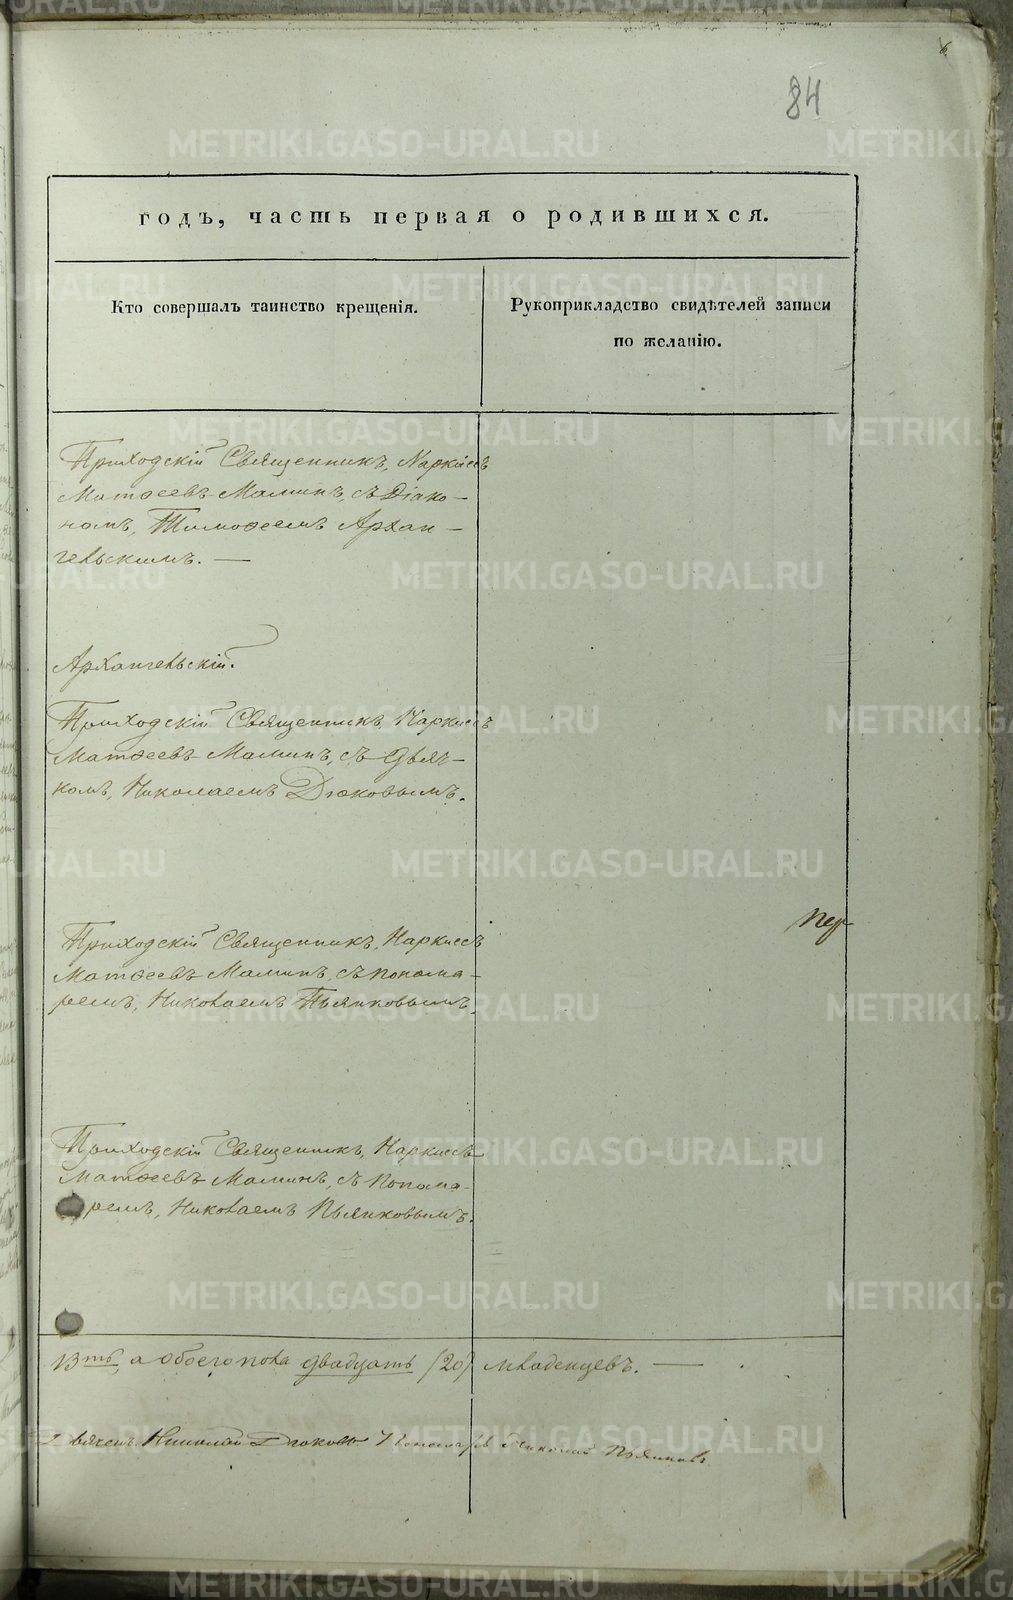 84
годъ, часть первая о родившихся.
Кто совершалъ таинство крещенія.
Рукоприкладство свидѣтелей записи
по желанію.
Приходскій Священникъ, Наркисъ
Матѳеевъ Маминъ, съ Діако-
номъ, Тимоѳеемъ Архан-
гельскимъ. —
Архангельскій.
Приходскій Священникъ, Наркисъ
Матѳеевъ Маминъ, съ Дьяч-
комъ, Николаемъ Дюковымъ.
Приходскій Священникъ, Наркисъ
Матѳеевъ Маминъ, съ понома-
ремъ, Николаемъ Пьянковымъ.
Приходскій Священникъ, Наркисъ
Матѳеевъ Маминъ, съ Понома-
ремъ, Николаемъ Пьянковымъ.
13ть, а обоего пола двадцать (20) младенцевъ. —
Николай Дюковъ Пономарь Николай Пьянковъ
METRIKI.GASO-URAL.RU